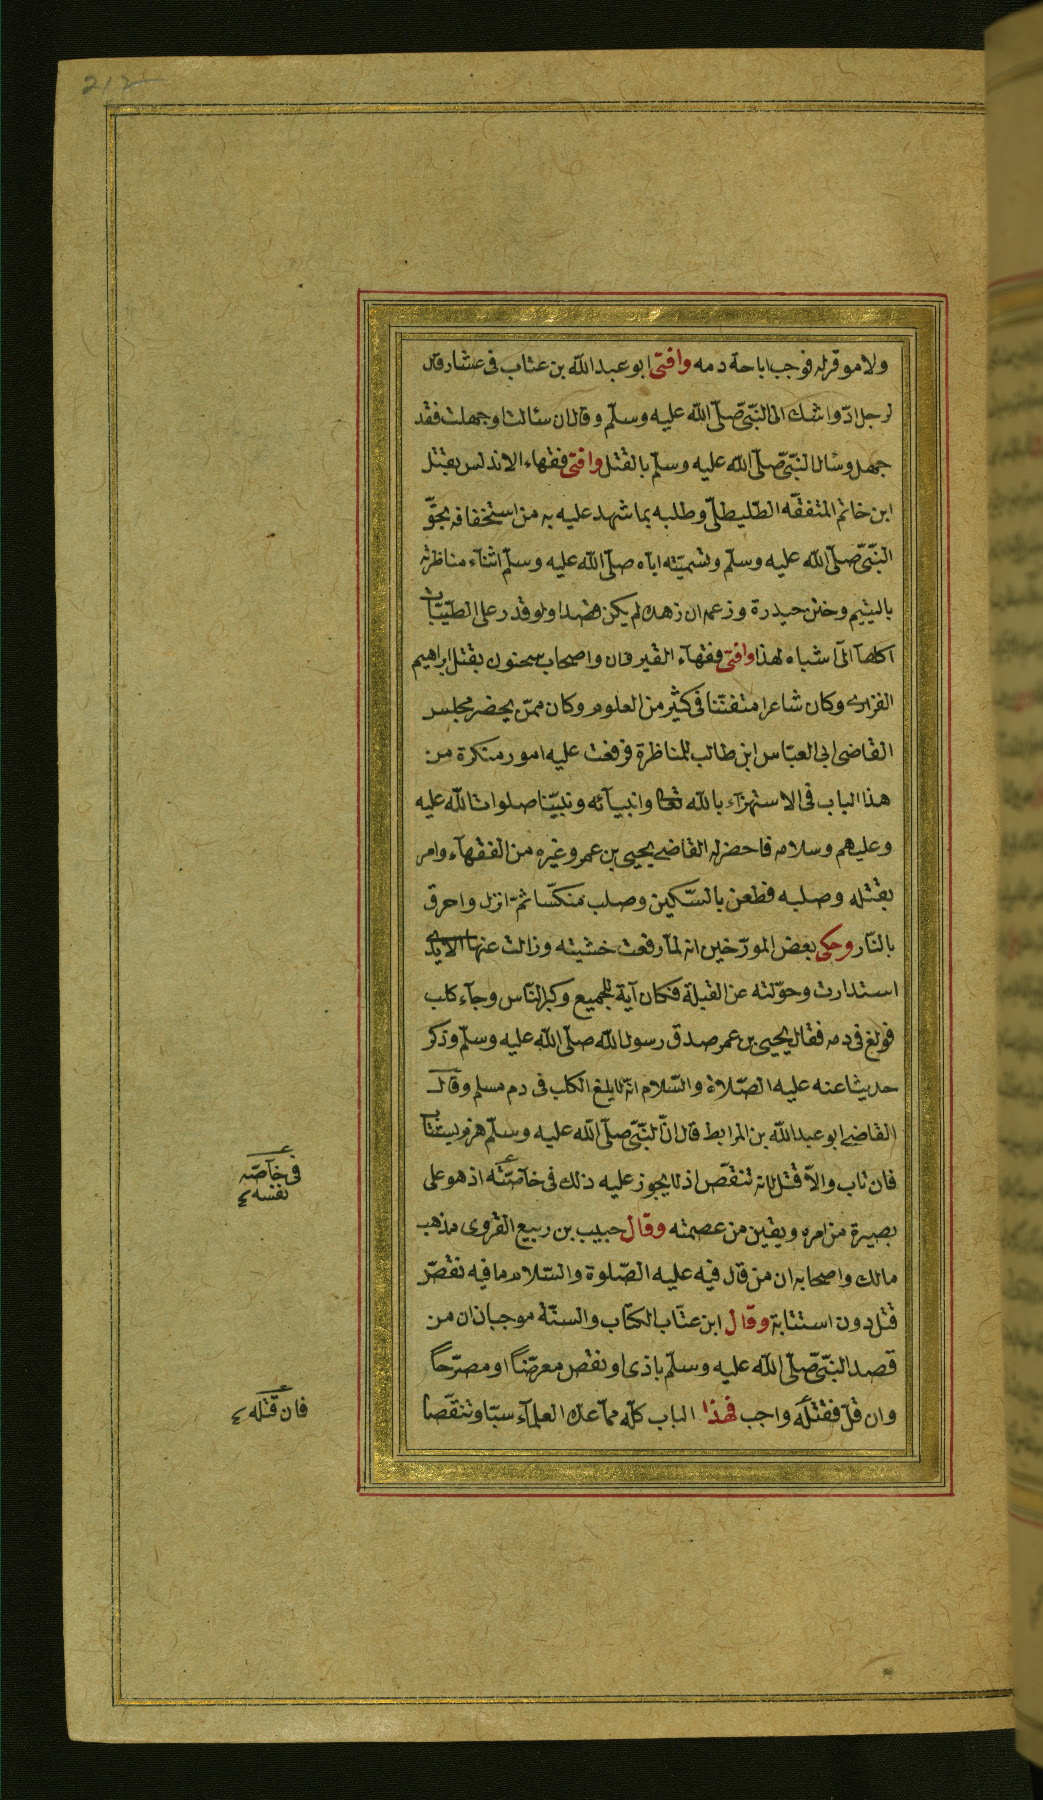 ولا موقر له فوجب اباحة دمه وافتى ابو عبد الله بن عتاب فى عشار قال
لرجل ادّ واشك الى النّبىّ صلّى الله عليه وسلّم وقال ان سئالت او جهلت فقد
جهل وسال النّبىّ صلّى الله عليه وسلّم بالقتل وافتى فقهاء الاندلس بقتل
ابن خاتم المتفقّه الطّليطلىّ وطلبه بما شهد عليه به من استخفافه بحقّ
النّبىّ صلّى الله عليه وسلّم وتسميّته اياه صلّى الله عليه وسلّم اثناء مناظرته
باليتيم وختن حيدرة وزعمه ان زهده لم يكن قصدا ولو قدر على الطّيّبات
اكلها الى اشباه لهذا وافتى فقهاء القيروان واصحاب سحنون بقتل ابراهيم
الفزارى وكان شاعرا متفنّنا فى كثير من العلوم وكان ممّن يحضر مجلس
القاضى ابى العبّاس ابن طالب للمناظرة فرفعت عليه امور منكرة من
هذا الباب فى الاستهزاء بالله تعا وانبيآئه ونبيّنا صلوات الله عليه
وعليهم وسلامه فاحضر له القاضى يحيى بن عمر وغيره من الفقهاء وامر
بقتله وصلبه فطعن بالسّكين وصلب منكّسا ثمّ انزل واحرق
بالنّار وحكى بعض المورّخين انه لمّا رفعت خشبته وزالت عنها الايدى
استدارت وحوّلته عن القبلة فكان آية للجميع وكبر النّاس وجآء كلب
فولغ فى دمه فقال يحيى بن عمر صدق رسول الله صلّى الله عليه وسلّم وذكر
حديثا عنه عليه الصّلاة والسّلام انّه لا يلغ الكلب فى دم مسلم وقال
القاضى ابو عبد الله بن المرابط من قال انّ النّبىّ صلّى الله عليه وسلّم هزم يستتاب
فان تاب والّا قتل لانه تنقّص اذ لا يجوز عليه ذلك فى خاصّته اذ هو على
بصيرة من امره ويقين من عصمته وقال حبيب بن ربيع القروى مذهب
مالك واصحابه ان من قال فيه عليه الصّلوة والسّلام ما فيه نقص
قتل دون استتابة وقال ابن عتّاب الكتاب والسنّة موجبان ان من
قصد النّبىّ صلّى الله عليه وسلّم باذى او نقص معرّضًا او مصرّحًا
وان قلّ فقتله واجب فهذا الباب كلّه ممّا عدّه العلمآء سبّا وتنقّصا
فى خاصّه
نفسه
فان قتله